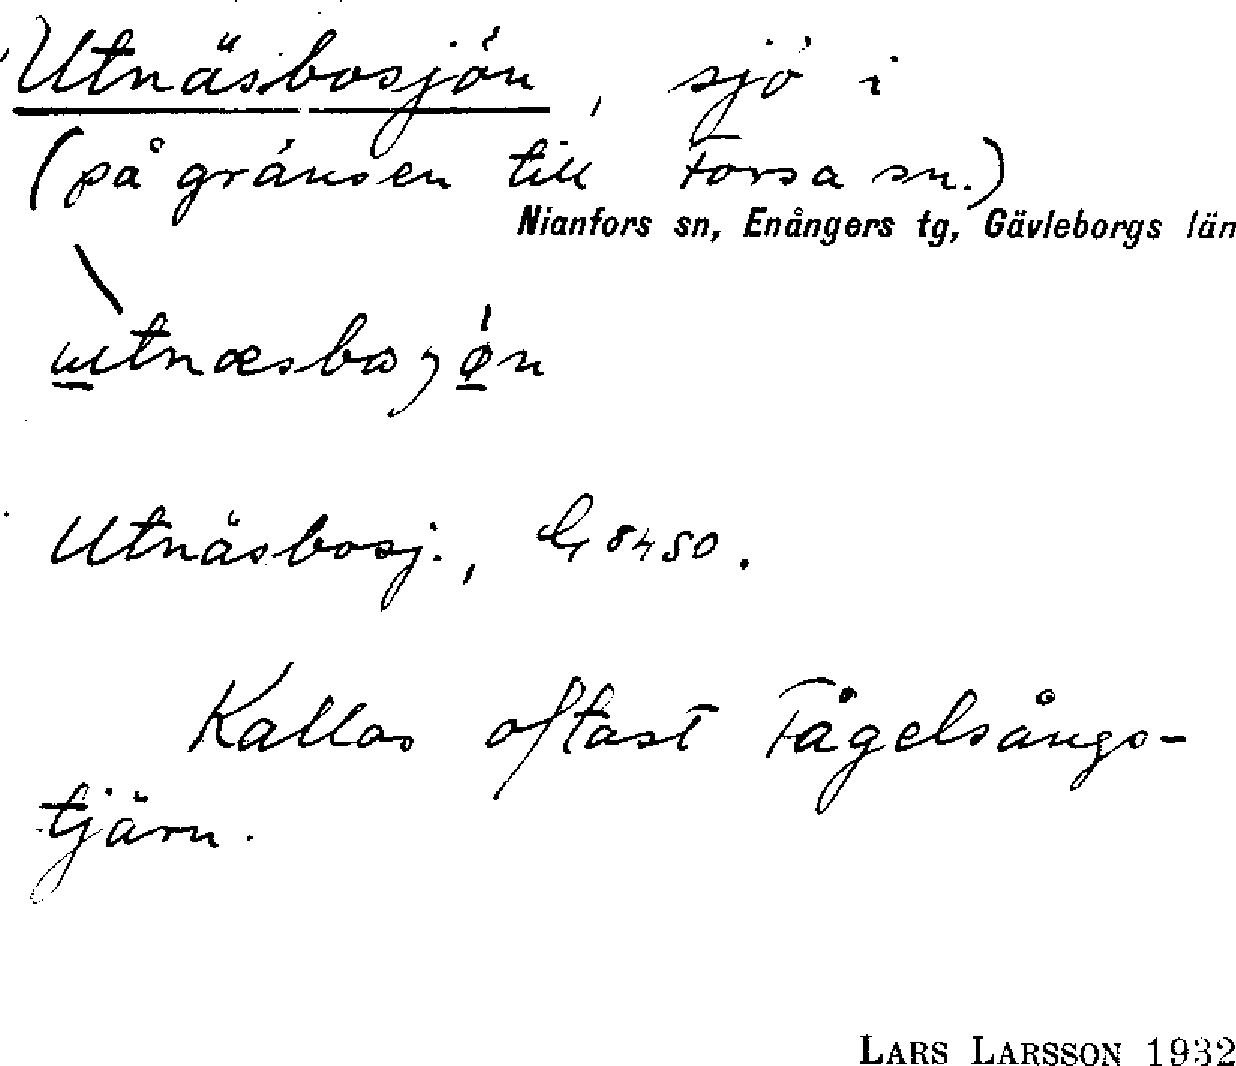 Utnäsbosjön, sjö i
(på gränsen till Forsa sn.)
Nianfors sn, Enångers tg, Gävleborgs län
Utnäsbosj., G 8450.
Kallas oftast Fågelsångs-
tjärn.
LARS LARSSON 1932